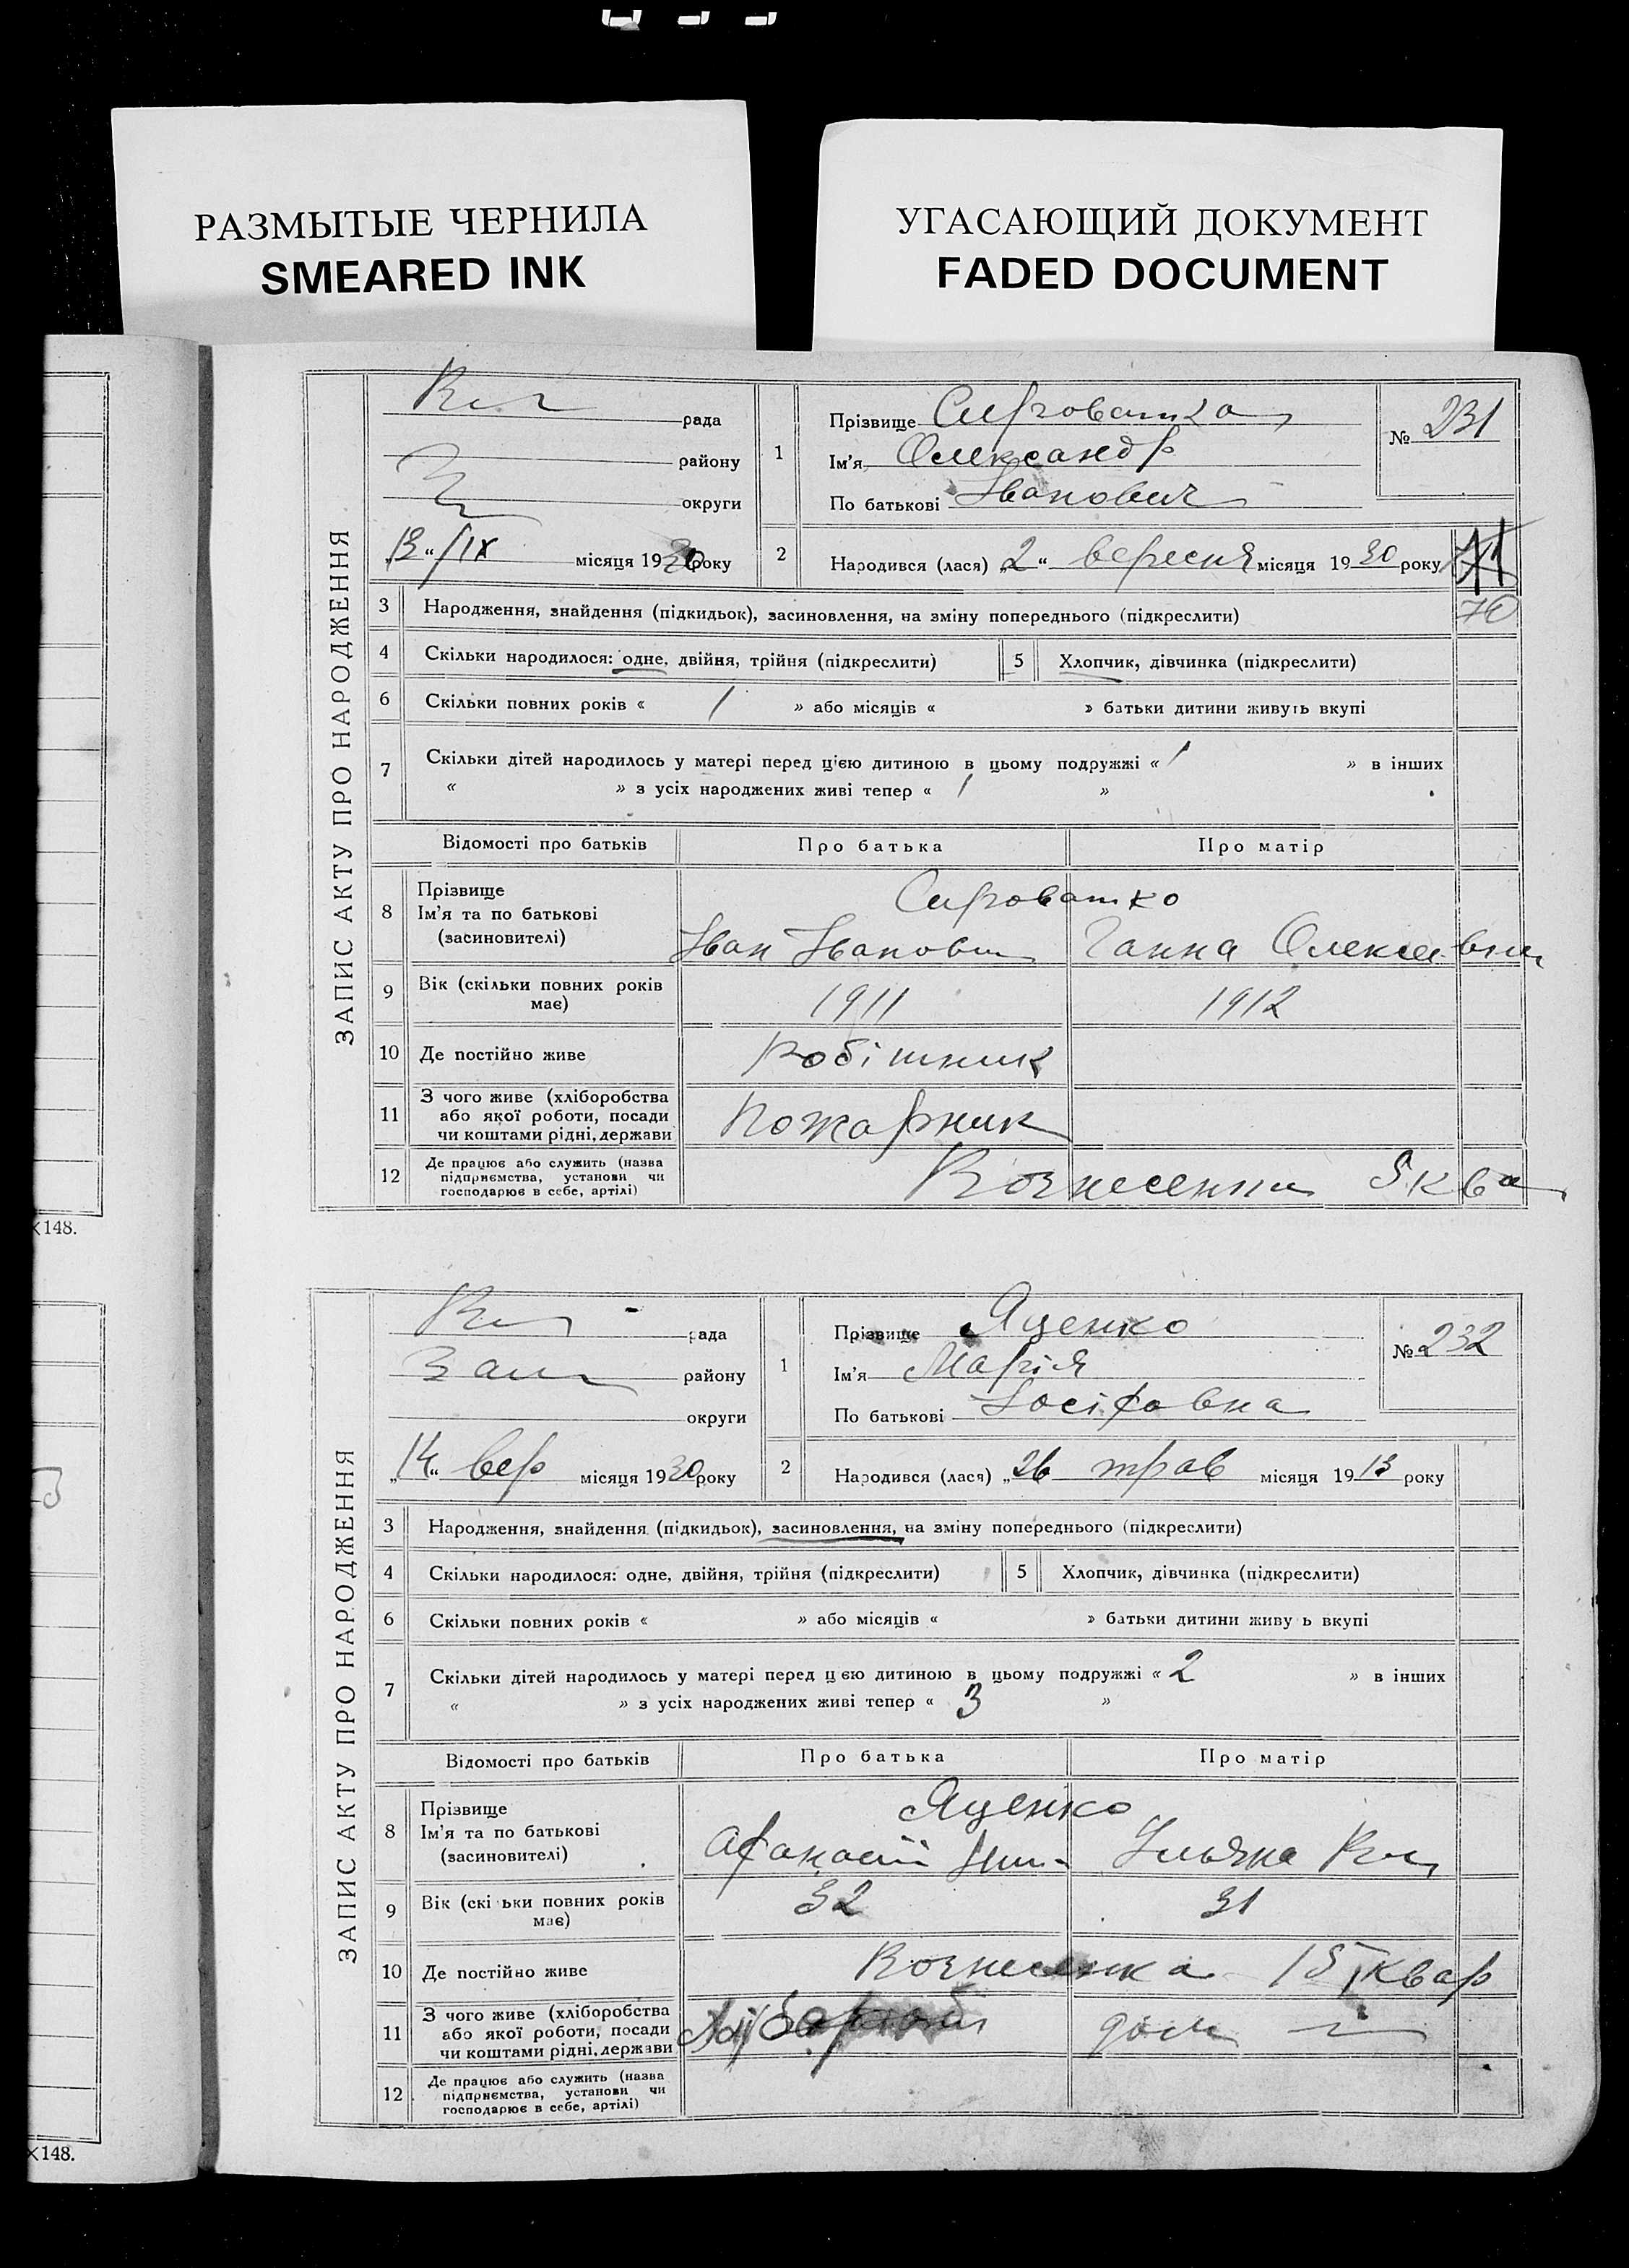 РАЗМЫТЫЕ ЧЕРНИЛА
SMEARED INK
УГАСАЮЩИЙ ДОКУМЕНТ
FADED DOCUMENT
ЗАПИС АКТУ ПРО НАРОДЖЕННЯ
рада
району
округи
місяця 1930 року
1
Прізвище Сировашка
Ім'я Олександр
По батькові Іванович
№ 231
2
Народився (лася) „2“ вересня місяця 1930 року
70
3 Народження, знайдення (підкидьок), засиновлення, на зміну попереднього (підкреслити)
4 Скільки народилося: одне, двійня, трійня (підкреслити) 5 Хлопчик, дівчинка (підкреслити)
6 Скільки повних років « 1 » або місяців « » батьки дитини живуть вкупі
7 Скільки дітей народилось у матері перед цією дитиною в цьому подружжі « 1 » в інших
« » з усіх народжених живі тепер « 1 »
Відомості про батьків Про батька Про матір
8 Прізвище Ім'я та по батькові (засиновителі)
Сировашко
Іван Іванович Ганна
9 Вік (скільки повних років має) 1911 1912
10 Де постійно живе Робітник
11 З чого живе (хліборобства або якої роботи, посади чи коштами рідні, держави Пожарник
12 Де працює або служить (назва підприємства, установи чи господарює в себе, артілі) Вознесенка
×148.
ЗАПИС АКТУ ПРО НАРОДЖЕННЯ
рада
району
округи
„14“ вер місяця 1930 року
1
Прізвище Яценко
Ім'я Марія
По батькові Йосіфовна
№ 232
2
Народився (лася) „26 трав місяця 1913 року
3 Народження, знайдення (підкидьок), засиновлення, на зміну попереднього (підкреслити)
4 Скільки народилося: одне, двійня, трійня (підкреслити) 5 Хлопчик, дівчинка (підкреслити)
6 Скільки повних років « » або місяців « » батьки дитини живу ь вкупі
7 Скільки дітей народилось у матері перед ц єю дитиною в цьому подружжі « 2 » в інших
« » з усіх народжених живі тепер « 3 »
Відомості про батьків Про батька Про матір
8 Прізвище Ім'я та по батькові (засиновителі)
Яценко
Афанасій Ульяна
9 Вік (скі ьки повних років має) 32 31
10 Де постійно живе Вознесенка 15 квар
11 З чого живе (хліборобства або якої роботи, посади чи коштами рідні, держави дом
12 Де працює або служить (назва підприємства, установи чи господарює в себе, артілі)
×148.